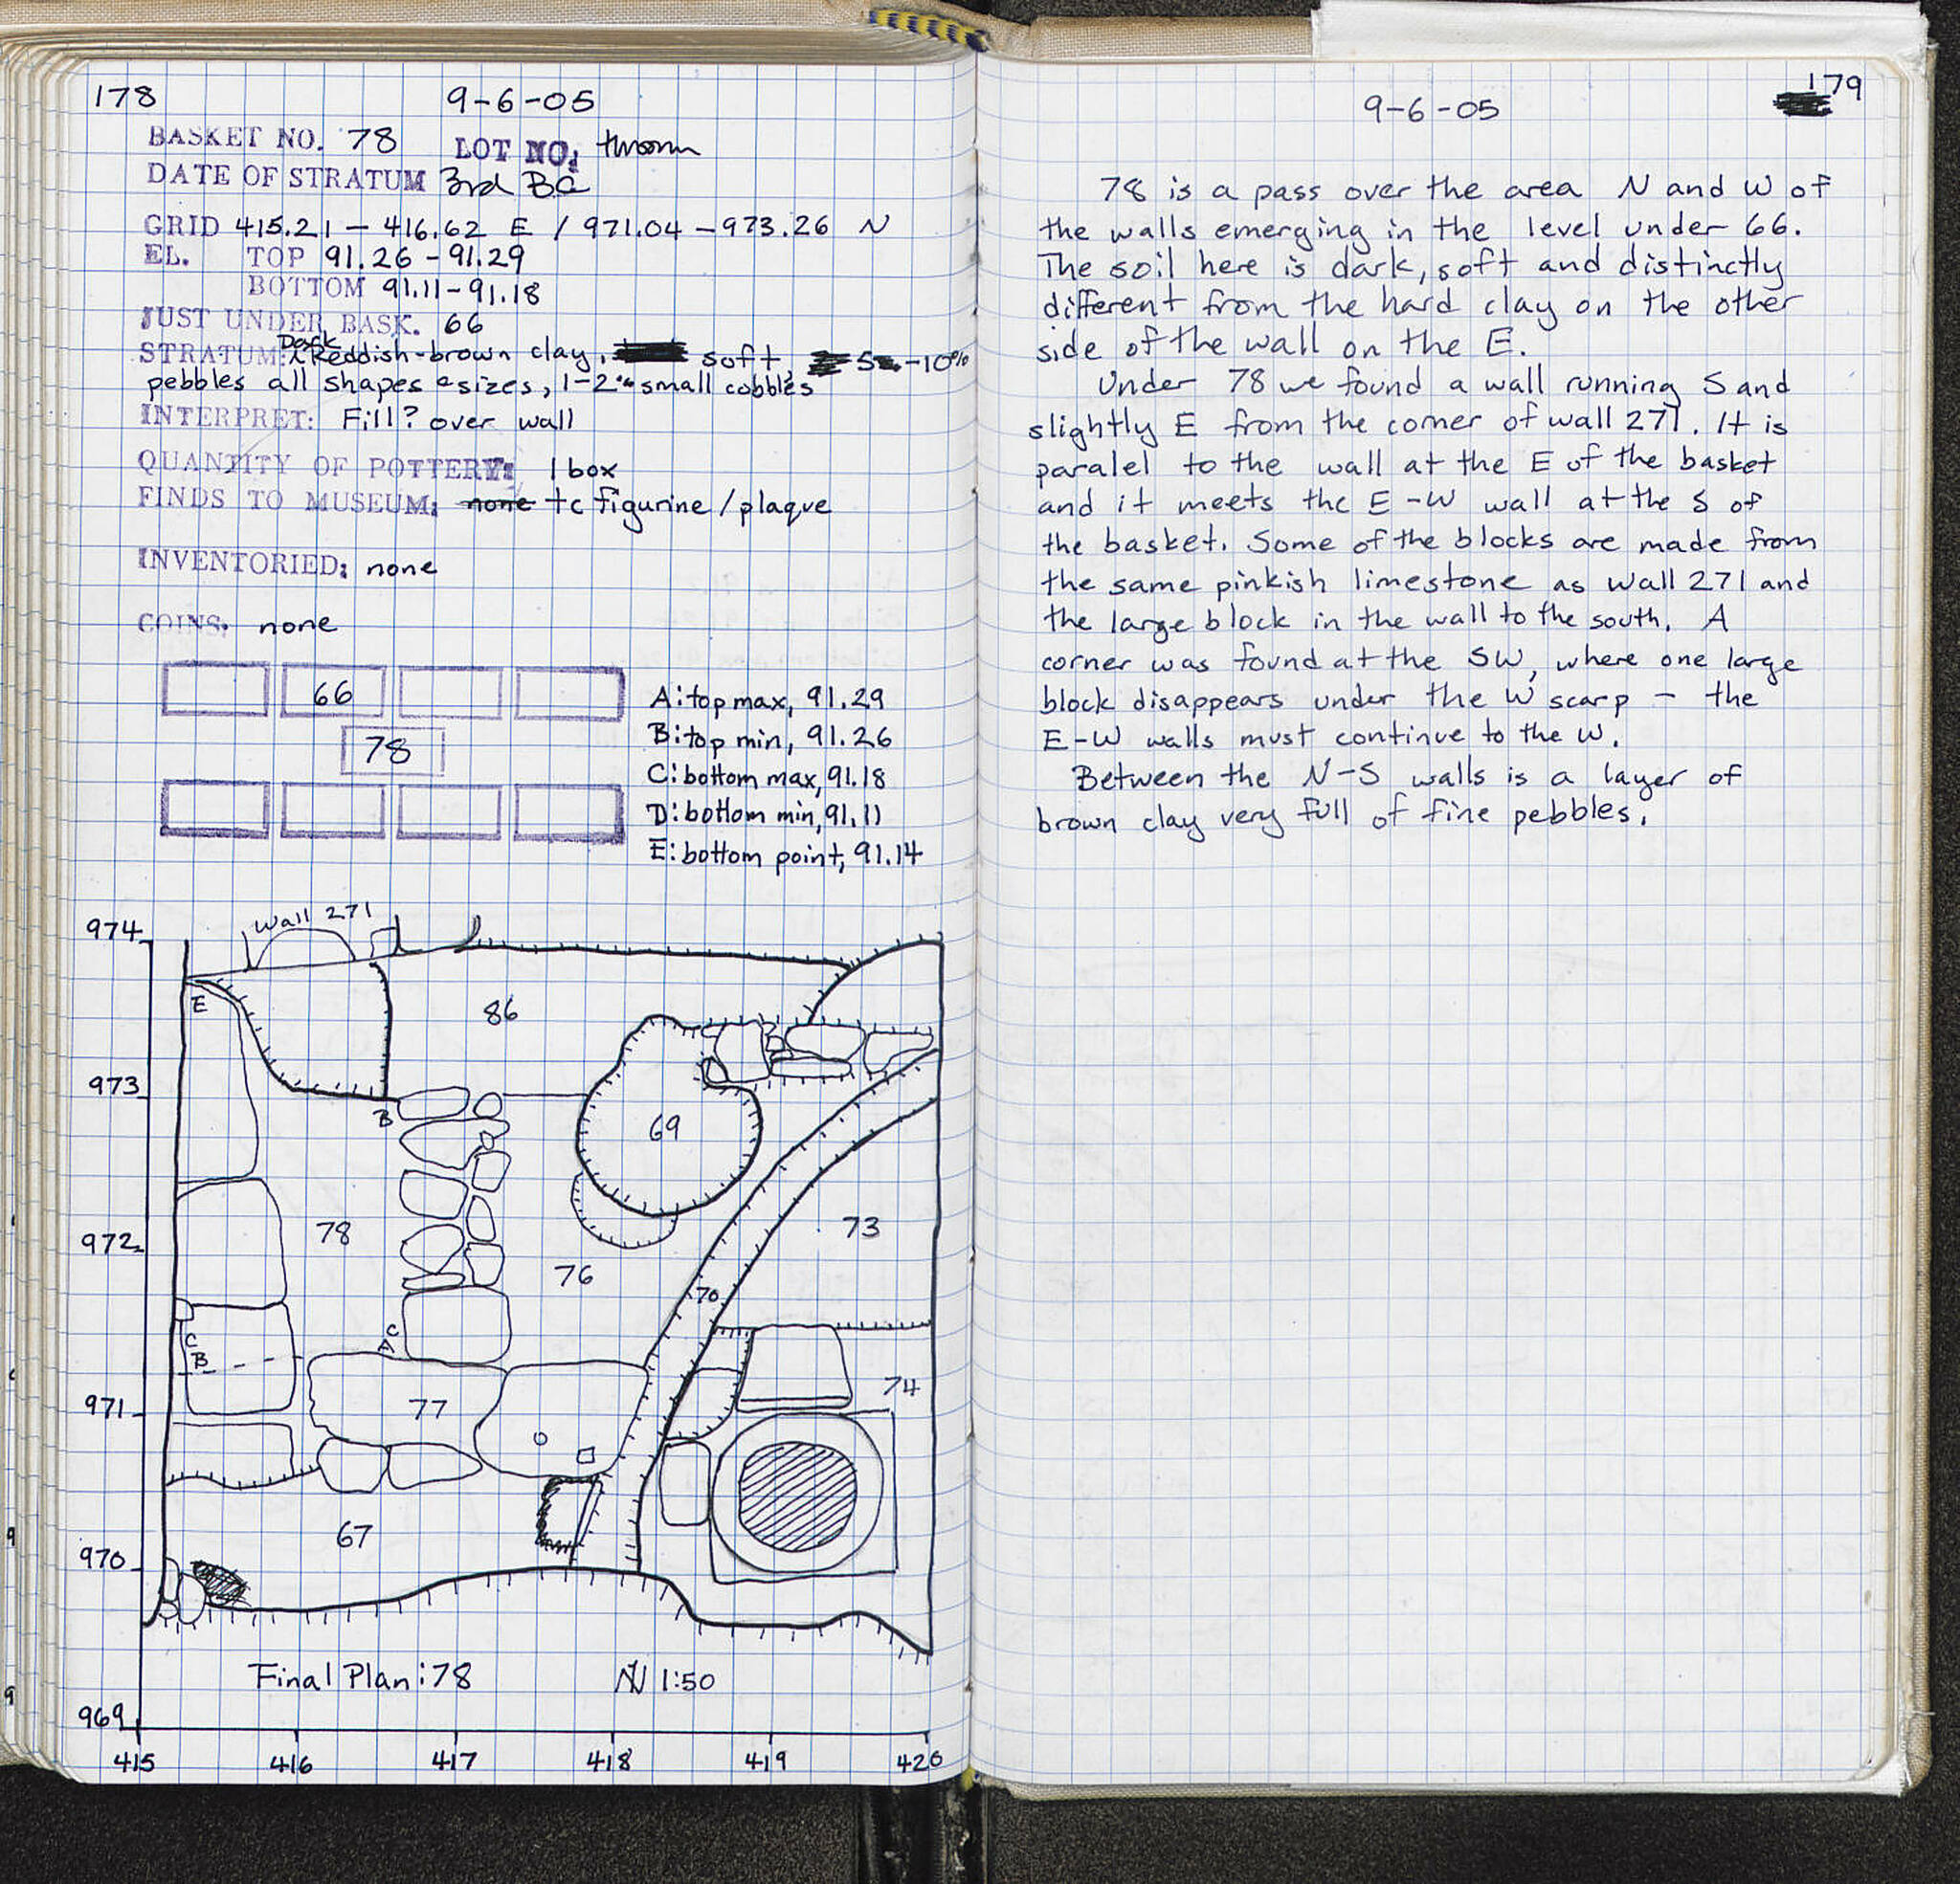 178
9-6-05
BASKET NO. 78 LOT NO: thrown
DATE OF STRATUM 3rd BC
GRID 415.21 - 416.62 E / 971.04 - 973.26 N
EL. TOP 91.26 - 91.29
BOTTOM 91.11 - 91.18
JUST UNDER BASK. 66
STRATUM: Dark Reddish-brown clay, soft, 5-10%
pebbles all shapes + sizes, 1-2% small cobbles
INTERPRET: Fill? over wall
QUANTITY OF POTTERY: 1 box
FINDS TO MUSEUM: none tc figurine/plaque
INVENTORIED: none
COINS: none
66
78
A: top max, 91.29
B: top min, 91.26
C: bottom max, 91.18
D: bottom min, 91.11
E: bottom point, 91.14
974
Wall 271
E
86
973
B
69
78
73
972
76
70
C
A
C
B
74
971
77
67
970
Final Plan: 78 N 1:50
969
415 416 417 418 419 420
179
9-6-05
78 is a pass over the area N and W of
the walls emerging in the level under 66.
The soil here is dark, soft and distinctly
different from the hard clay on the other
side of the wall on the E.
Under 78 we found a wall running S and
slightly E from the corner of wall 271. It is
paralel to the wall at the E of the basket
and it meets the E-W wall at the S of
the basket. Some of the blocks are made from
the same pinkish limestone as wall 271 and
the large block in the wall to the south. A
corner was found at the SW, where one large
block disappears under the W scarp - the
E-W walls must continue to the W.
Between the N-S walls is a layer of
brown clay very full of fine pebbles.